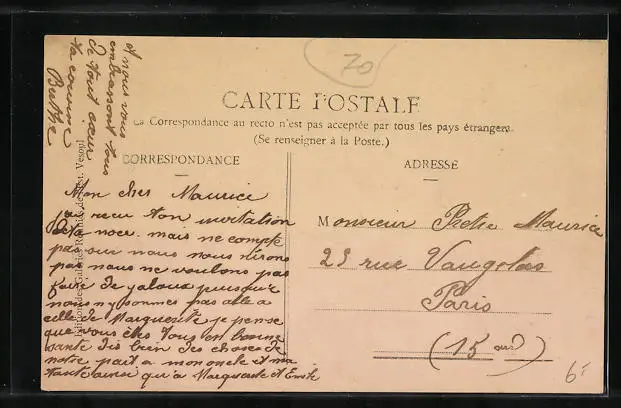 70
CARTE POSTALE
La Correspondance au recto n'est pas acceptée par tous les pays étrangers.
(Se renseigner à la Poste.)
CORRESPONDANCE
ADRESSE
Mon cher Maurice
j'ai recu ton invitation
de ta noce. mais ne compte
pas sur nous nous nirons
pas nous ne voulons pas
faire de jaloux puisque
nous n'y sommes pas allé a
celle de Marguerite je pense
que vous êtes tous en bonne
santé dis bien des choses de
notre part a mon oncle et ma
tante ainsi qu'a Marguerite et Emile
et nous vous
embrassont tous
de tout cœur
ta cousine
Berthe
Monsieur Maurice
23 rue Vaugelas
Paris
(15 ard)
6f
Edition des Galeries Réunies de l'Est. Vesoul